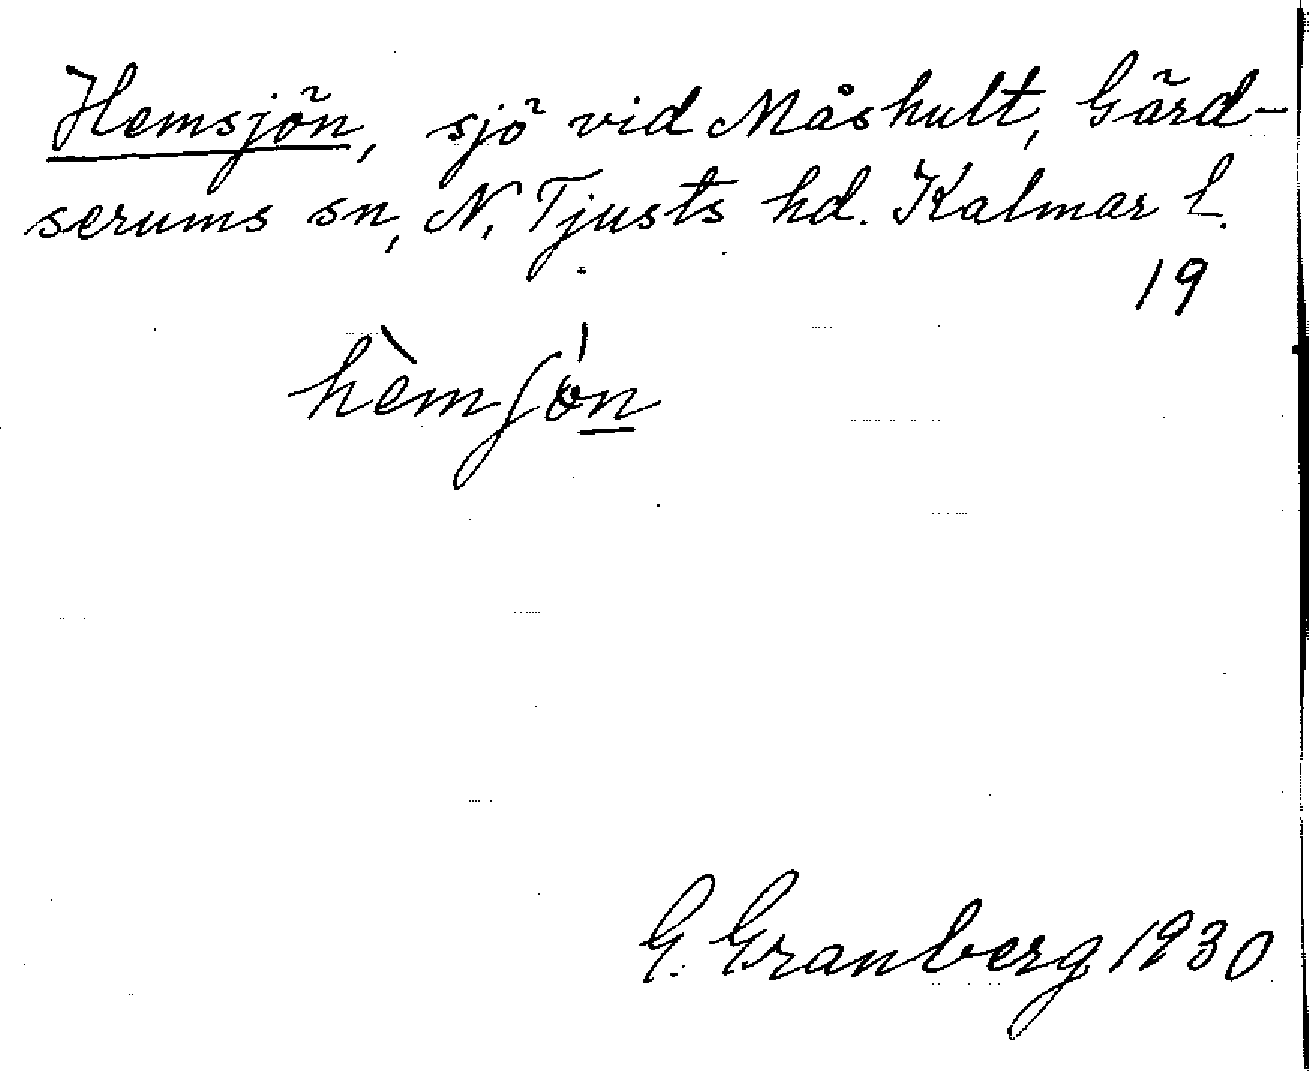 Hemsjön, sjö vid Måshult, Gärd-
serums sn, N. Tjusts hd. Kalmar l.
19
hèmʃön
G. Granberg 1930